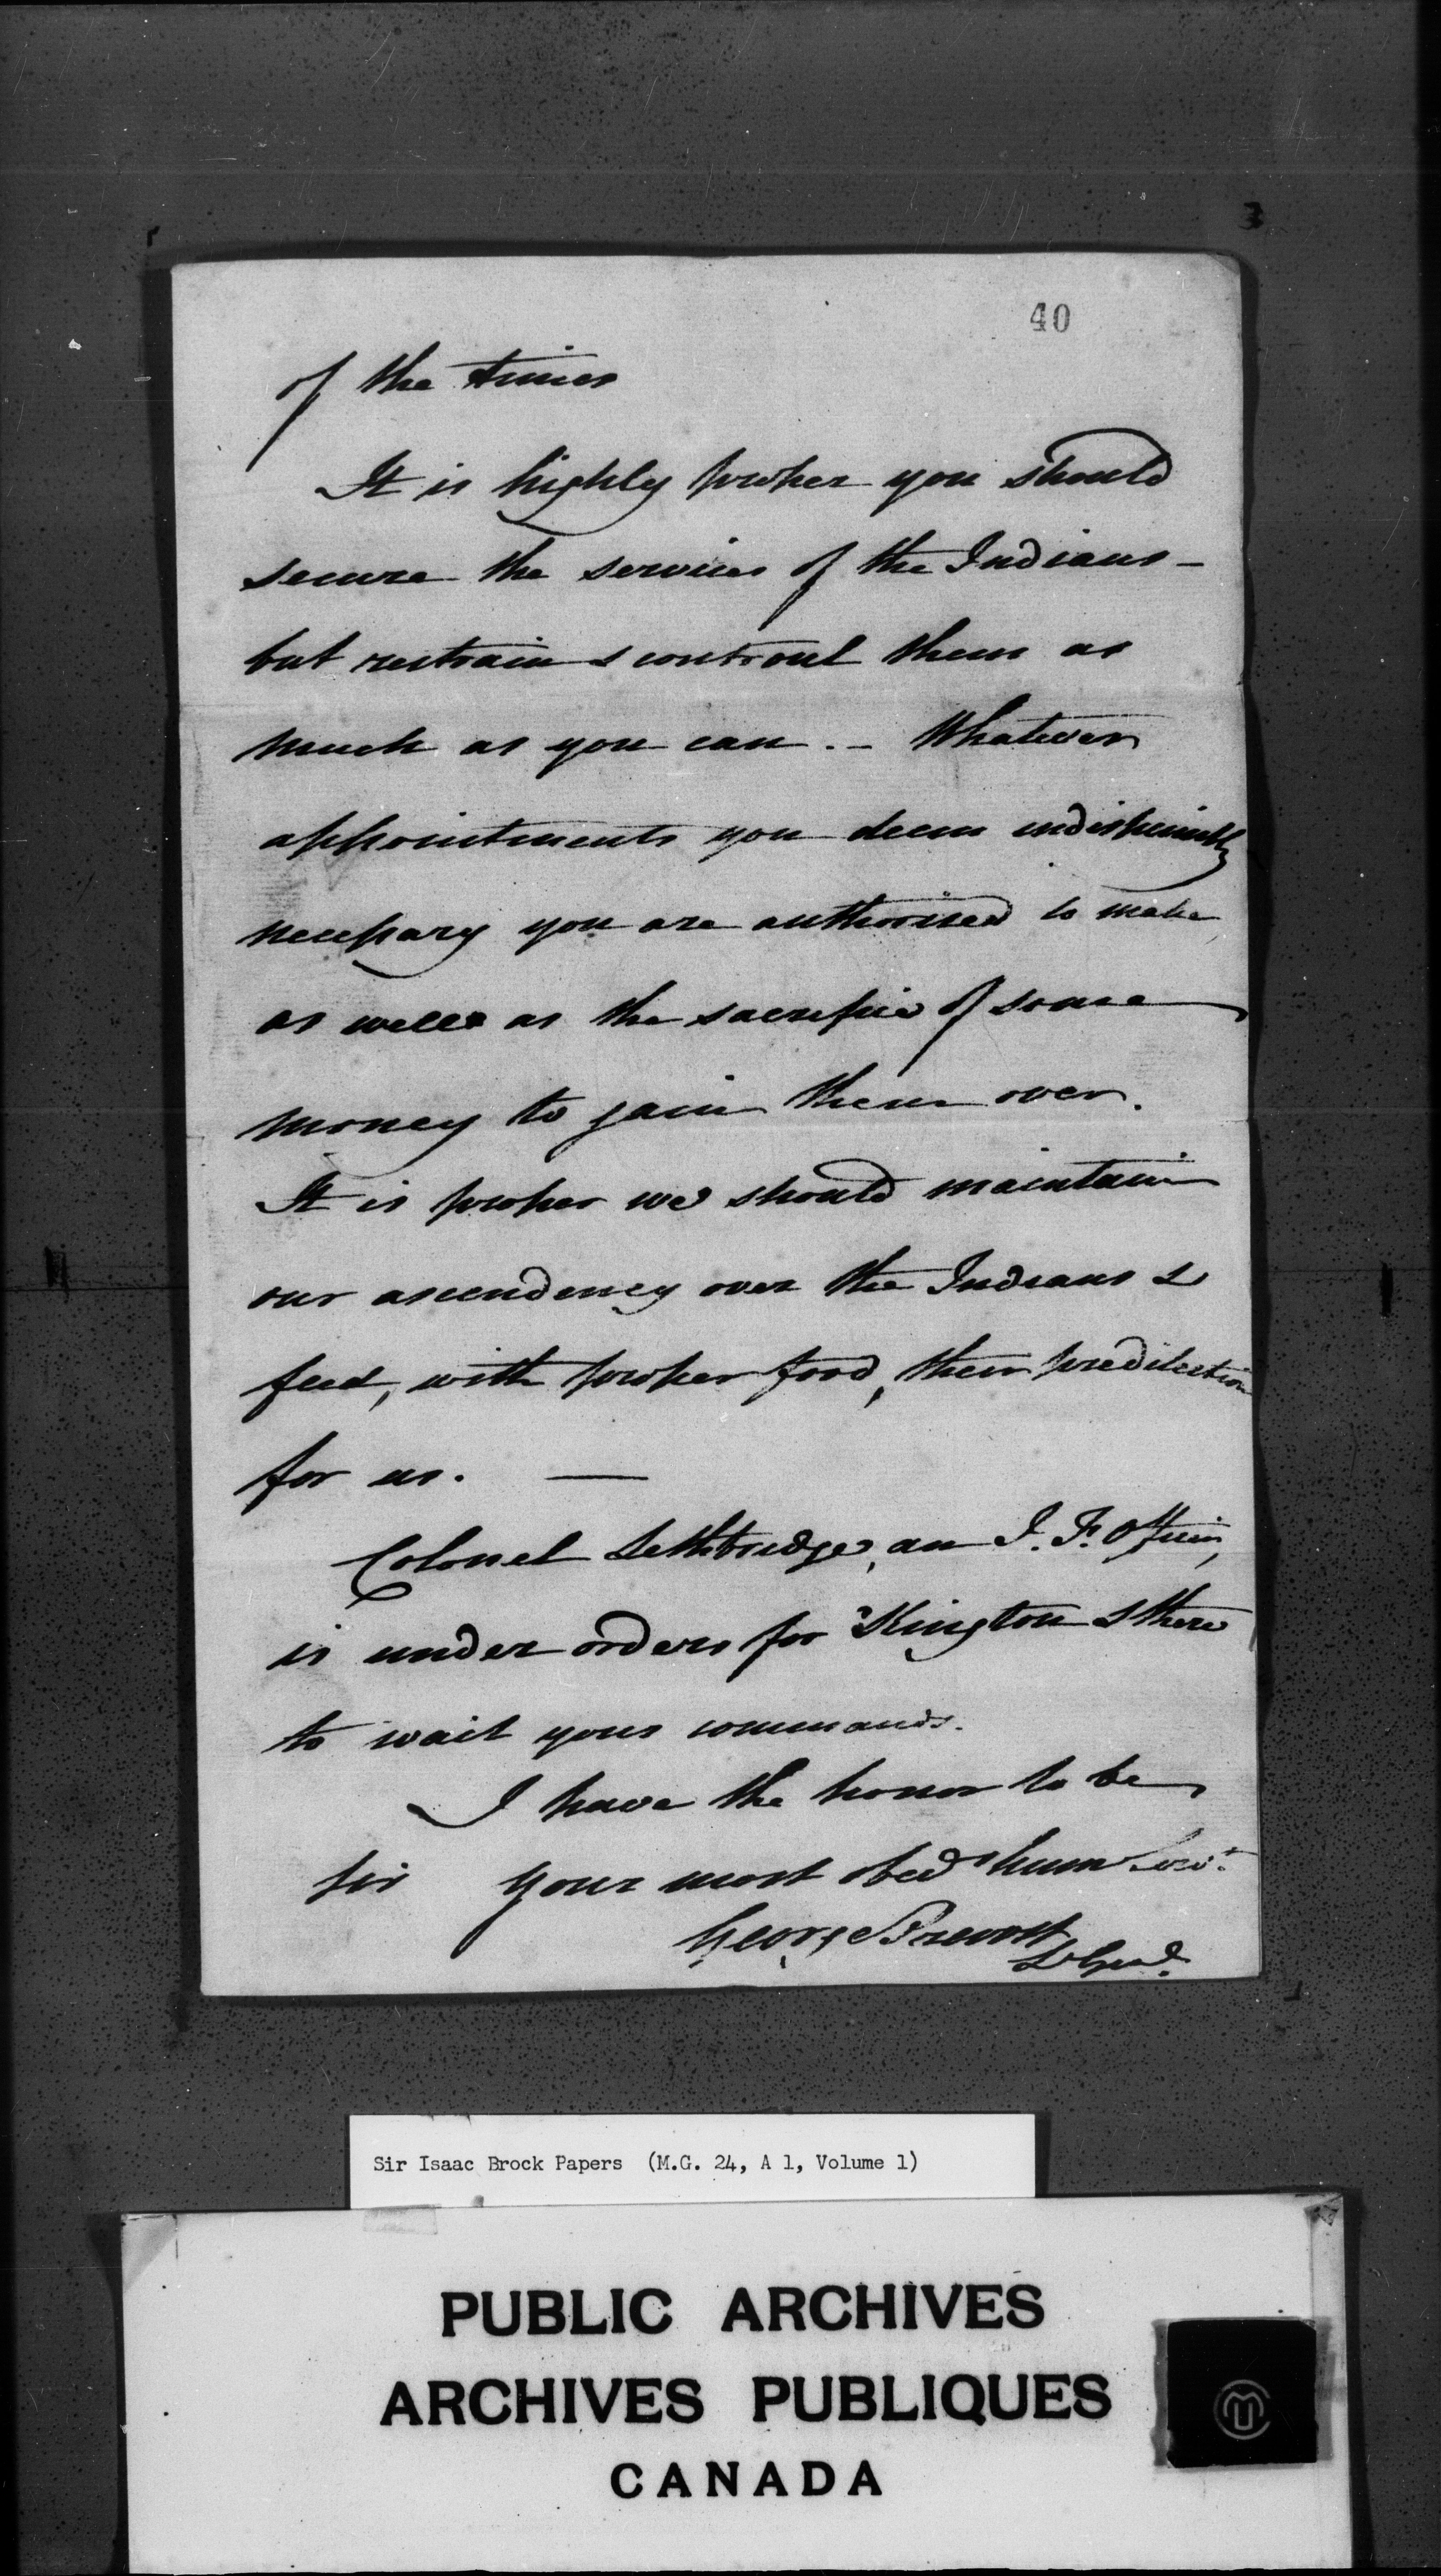 40
of the times
It is highly proper you should
secure the services of the Indians -
but restrain & controul them as
much as you can. - Whatever
appointments you deem indispensibly
necessary you are authorised to make
as well as the sacrifice of some
money to gain them over.
It is proper we should maintain
our ascendency over the Indians &
feed, with proper food, their predilection
for us. —
Colonel Lethbridge, an I. F. Officer,
is under orders for Kingston & there
to wait your commands.
I have the honor to be
Sir your most obed hum Servt.
George Prevost
Lt Genl.
Sir Isaac Brock Papers (M.G. 24, A 1, Volume 1)
PUBLIC ARCHIVES
ARCHIVES PUBLIQUES
CANADA